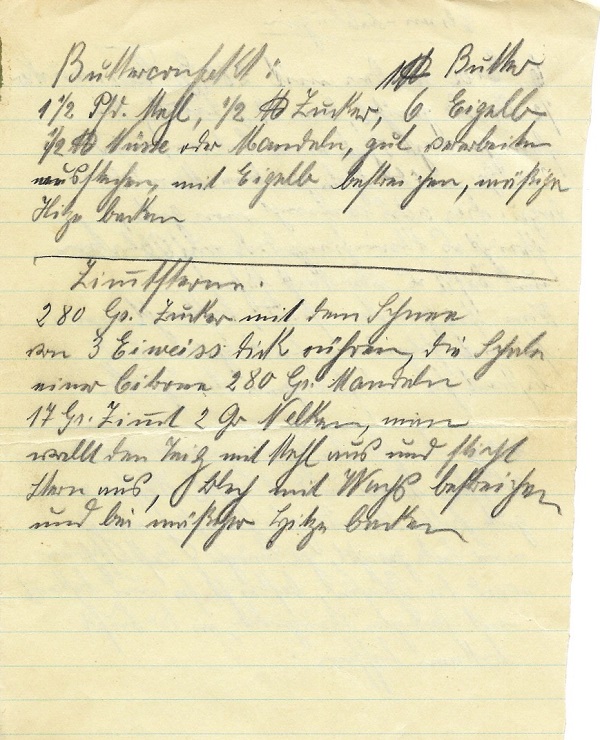 Butterconfekt: 1 ℔ Butter
1 1/2 Pfd. Mehl, 1/2 ℔ Zucker, 6 Eigelb
1/2 ℔ Nüsse oder Mandeln, gut verarbeiten
ausstechen, mit Eigelb bestreichen, mäßige
Hitze backen
Zimtsterne.
280 Gr. Zucker mit dem Schnee
von 3 Eiweiss dick rühren, die Schale
einer Citrone 280 Gr. Mandeln
17 Gr. Zimt 2 Gr Nelken, man
wellt den Teig mit Mehl aus und sticht
Stern aus, Blech mit Wachs bestreichen
und bei mäßiger Hitze backen